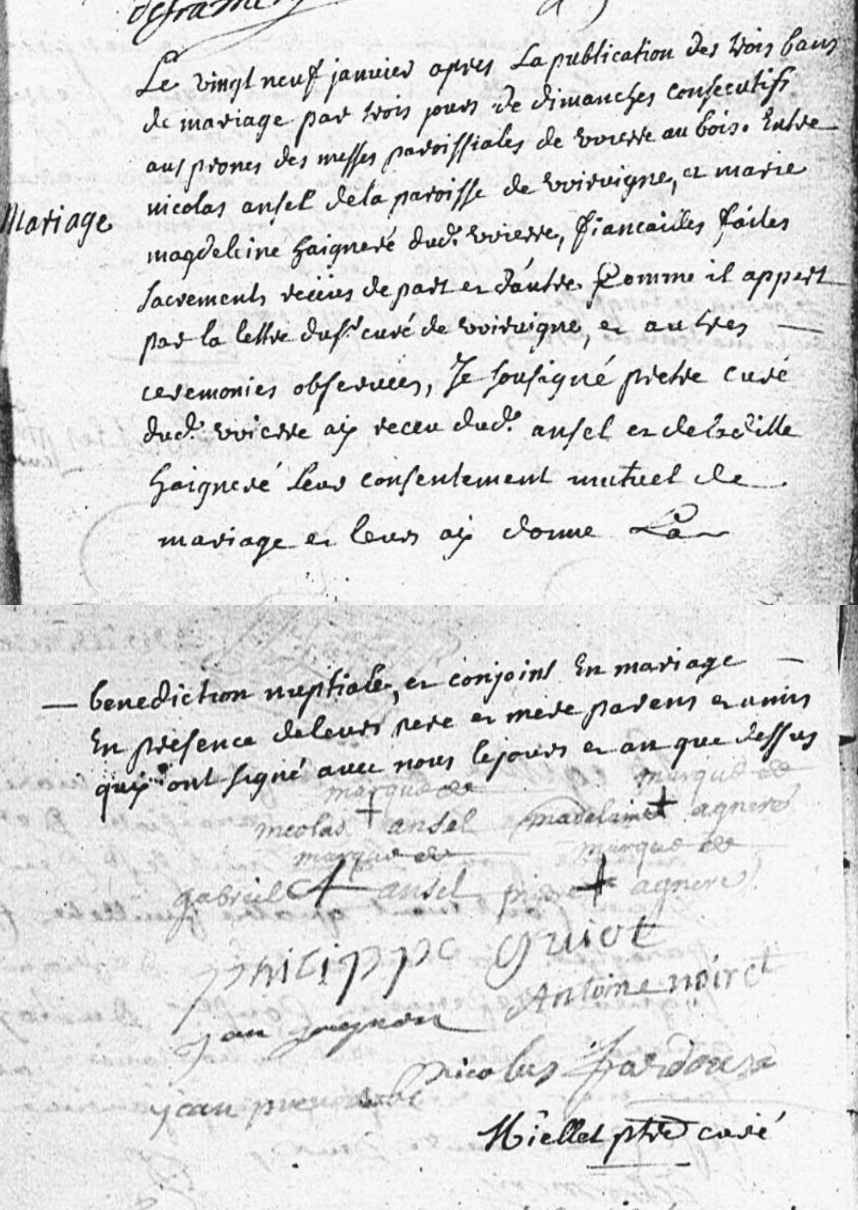 Le vingt neuf janvier apres La publication des trois bans
de mariage par trois jours de dimanches consecutifs
aus prones des messes paroissiales de voiere au bois. Entre
nicolas ansel dela paroisse de voirvigne, et marie
Mariage
magdeleine haigneré dud.
sacrements reçeus de part et d'autre Comme il appert
par la lettre du sr. curé de voirvigne, et autres —
ceremonies observeés, Je sousigné pretre curé
dud. ay receu dud. ansel et de lad. ille
haigneré leur consentement mutuel de
mariage et leurs ay donne La
— benediction nuptiale, et conjoins En mariage —
En presence de leurs pere et mere parens et amis
qui ont signé avec nous le jour et an que dessus
marque de marque de
nicolas + ansel madelaine + agneré
marque de marque de
gabriel + ansel pierre + agneré
philippe guiot
Antoine noiret
jan
nicolas
jean
Miellet ptre curé